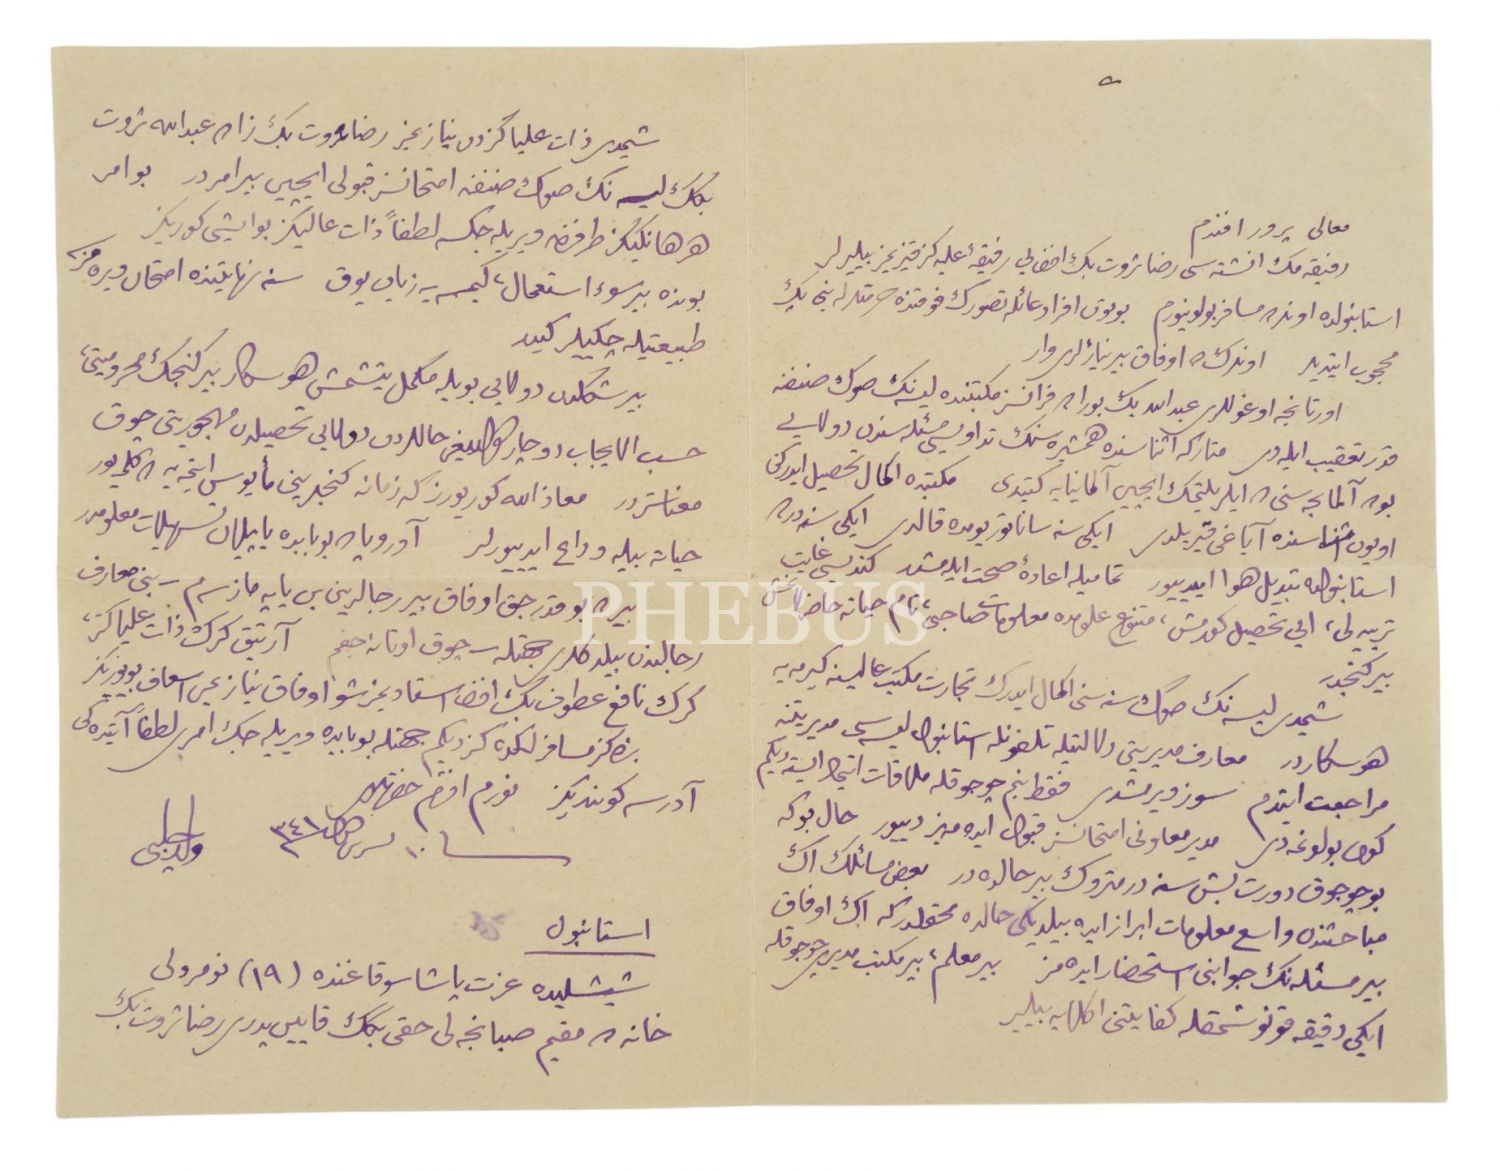 معالی پرور افندم
رفیقه مك انشته سی رضا ثروت بك افندی رفیقۀ علیه كز قیزیز بیلیرلر
استانبولده اونده مسافر بولونیورم بوتون افراد عائله تصورك فوقنده حرمتلرله بنی پك
محجوب ایتدیلر اونلرك اوفاق بیر نیازلری وار
اورتانجه اوغوللری عبدالله بك بوراده فرانسز مكتبنده لیسه نك صوك صنفنه
قدر تعقیب ایله دی متاركه اثناسنده همشیره سنك تداویسی مسئله سندن دولایی
بوده آلمانجه سنی ایلریلتمك ایچین آلمانیایه كیتدی مكتبده اكمال تحصیل ایدركن
اویون اثناسنده آیاغی قیریلدی ایكی سنه ساناتوریومده قالدی ایكی سنه در
استانبولده تبدیل هوا ایدییور تمامیله اعادۀ صحت ایله مشدر كندیسی غایت
تربیه لی، ایی تحصیل كورمش، متنوع علومده معلومات صاحبی، تام حیاته حاضرلانمش
بیر كنجدر
شیمدی لیسه نك صوك سنه سنی اكمال ایدرك تجارت مكتب عالیسنه گیرمه یه
هوسكاردر معارف مدیریتی دلالتیله تلفونله استانبول لیسه سی مدیریتنه
مراجعت ایتدم سوز ویرمشدی فقط بنم چوجوقله ملاقات ایتمه ایستدیكم
كون بولونمه دی مدیر معاونی امتحانسز قبول ایده مه یز دییور حال بوكه
بو چوجوق دورت بش سنه در متروك بیر حالده در بعض مسائلك اك
مباحثنده واسع معلومات ابراز ایده بیلدیكی حالده محتملدر كه اك اوفاق
بیر مسئله نك جوابنی استحضار ایده مز بیر معلم، بیر مكتب مدیری چوجوقله
ایكی دقیقه قونوشمقله كفایتنی اكلایه بیلیر
PHEBUS
شیمدی ذات علیاكزدن نیازمز رضا ثروت بك زاده عبدالله ثروت
بكك لیسه نك صوك صنفنه امتحانسز قبولی ایچین بیر امردر بو امر
هر هانكیكز طرفندن ویریله جكسه لطفاً ذات عالیكز بو ایشی كوریكز
بونده بیر سوء استعمال، كیمسه یه زیان یوق سنه نهایتنده امتحان ویره مزسه
طبیعتیله چكیلیر كیدر
بیر شكلدن دولایی بویله مكمل یتیشمش هوسكار بیر كنجك محرومیتی،
حسب الایجاب دوچار اولدیغی حاللردن دولایی تحصیلدن مهجوریتی چوق
معناسزدر معاذ الله كورییورز كه زمانه كنجلرینی مأیوس ایتمه یه كلمییور
حیاته بیله وداع ایدییورلر آوروپاده بو بابده یاپیلان تسهیلات معلومدر
بیزده بو قدرجق اوفاق بیر رجالرینی یاپه مازسه م بنی معارف
رجالندن بیلدكلری جهتله چوق اوتانه جغم آرتیق كرك ذات علیاكز،
كرك نافع عطوف بك افندی استادیمز شو اوفاق نیازیمی اسعاف بویوریكز
بنده كز مسافرلكده كزدیكم جهتله بو بابده ویریله جك امری لطفاً آتیده كی
آدرسه كوندریكز نورم افندم حضرتلری
١٠ ٣٤١
ولد چلبی
استانبول
شیشلیده عزت پاشا سوقاغنده (١٩) نومرولی
خانه ده مقیم صبانجه لی حقی بكك قاین پدری رضا ثروت بك